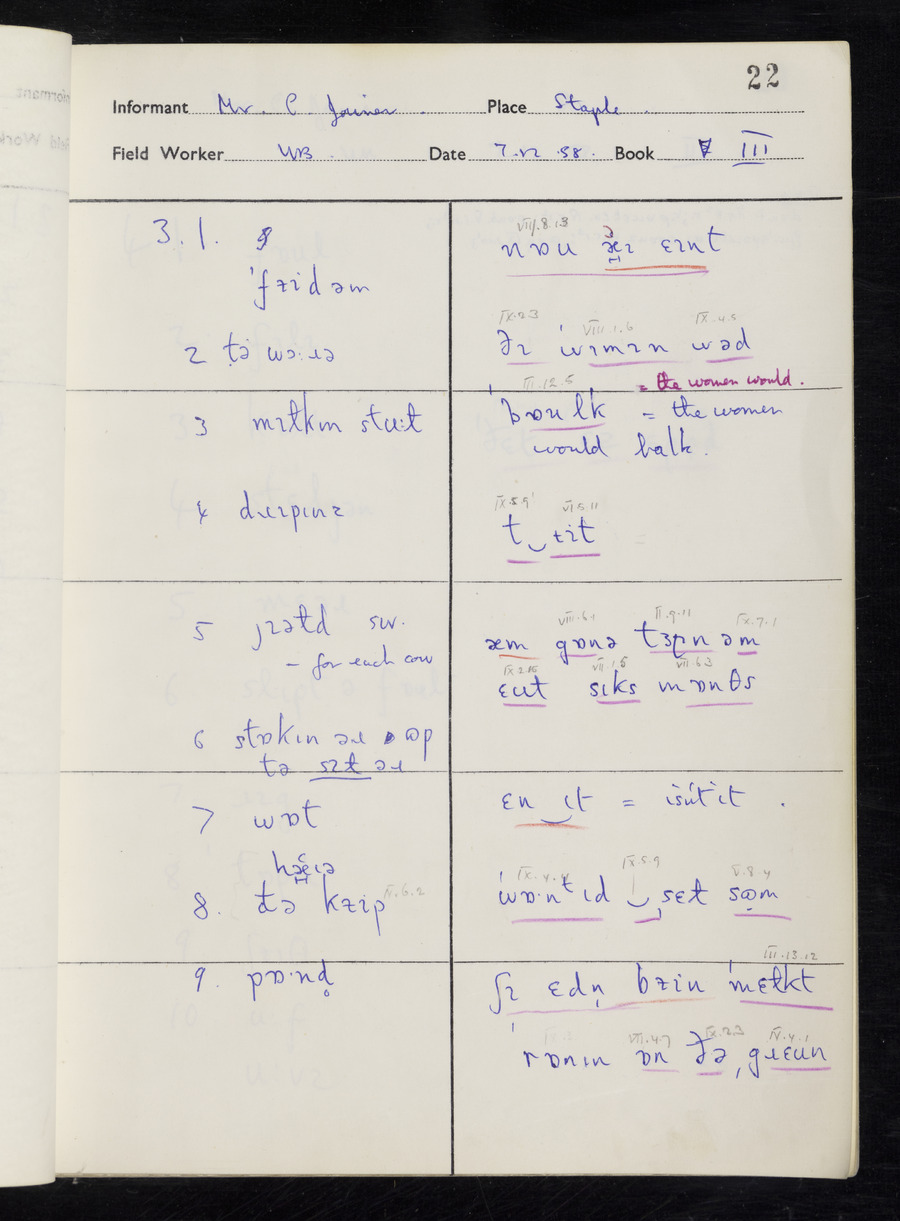 22
Informant Mr. C. Joiner Place Staple
Field Worker Date 7.12.58. Book III
3.1.
ˈfɹidəm
2 tə wɔːɹə
3 mɪɫkɪn stuːɫ
4 dɹɪpɪnz
5
- for each cow
6 stɒkɪn əɹ ɒp
tə sɪt əɹ
7 wɒt
hæɪə
8. tə kɪip IV.6.2
9. pɒˑnd̥
VIII.8.13
nɒu ɛɪnt
IX.2.3 VIII.1.6 IX.4.5
ðɪ ˈwɪmɪn wəd
= the women would.
III.12.5
ˈbɒulk = the women
would balk.
IX.5.9 VI.5.11
t‿ɪit
VIII.6.1 II.9.11 IX.7.1
æm gɒnə tɜpn əm
IX.2.15 VII.1.5 VII.6.3
ɛut sɪks mɒnθs
ɛn‿ɪt = isn't it.
IX.4.4 IX.5.9 V.8.4
ˈwɒˑntɪd ‿ˌsɛt sɒm
III.13.12
ʃɪ ɛdn̩ bɪin ˈmɛɫkt
VIII.4.7 IX.2.3 IV.4.1
ˈrɒnɪn ɒn ðə ˌgɹɛun